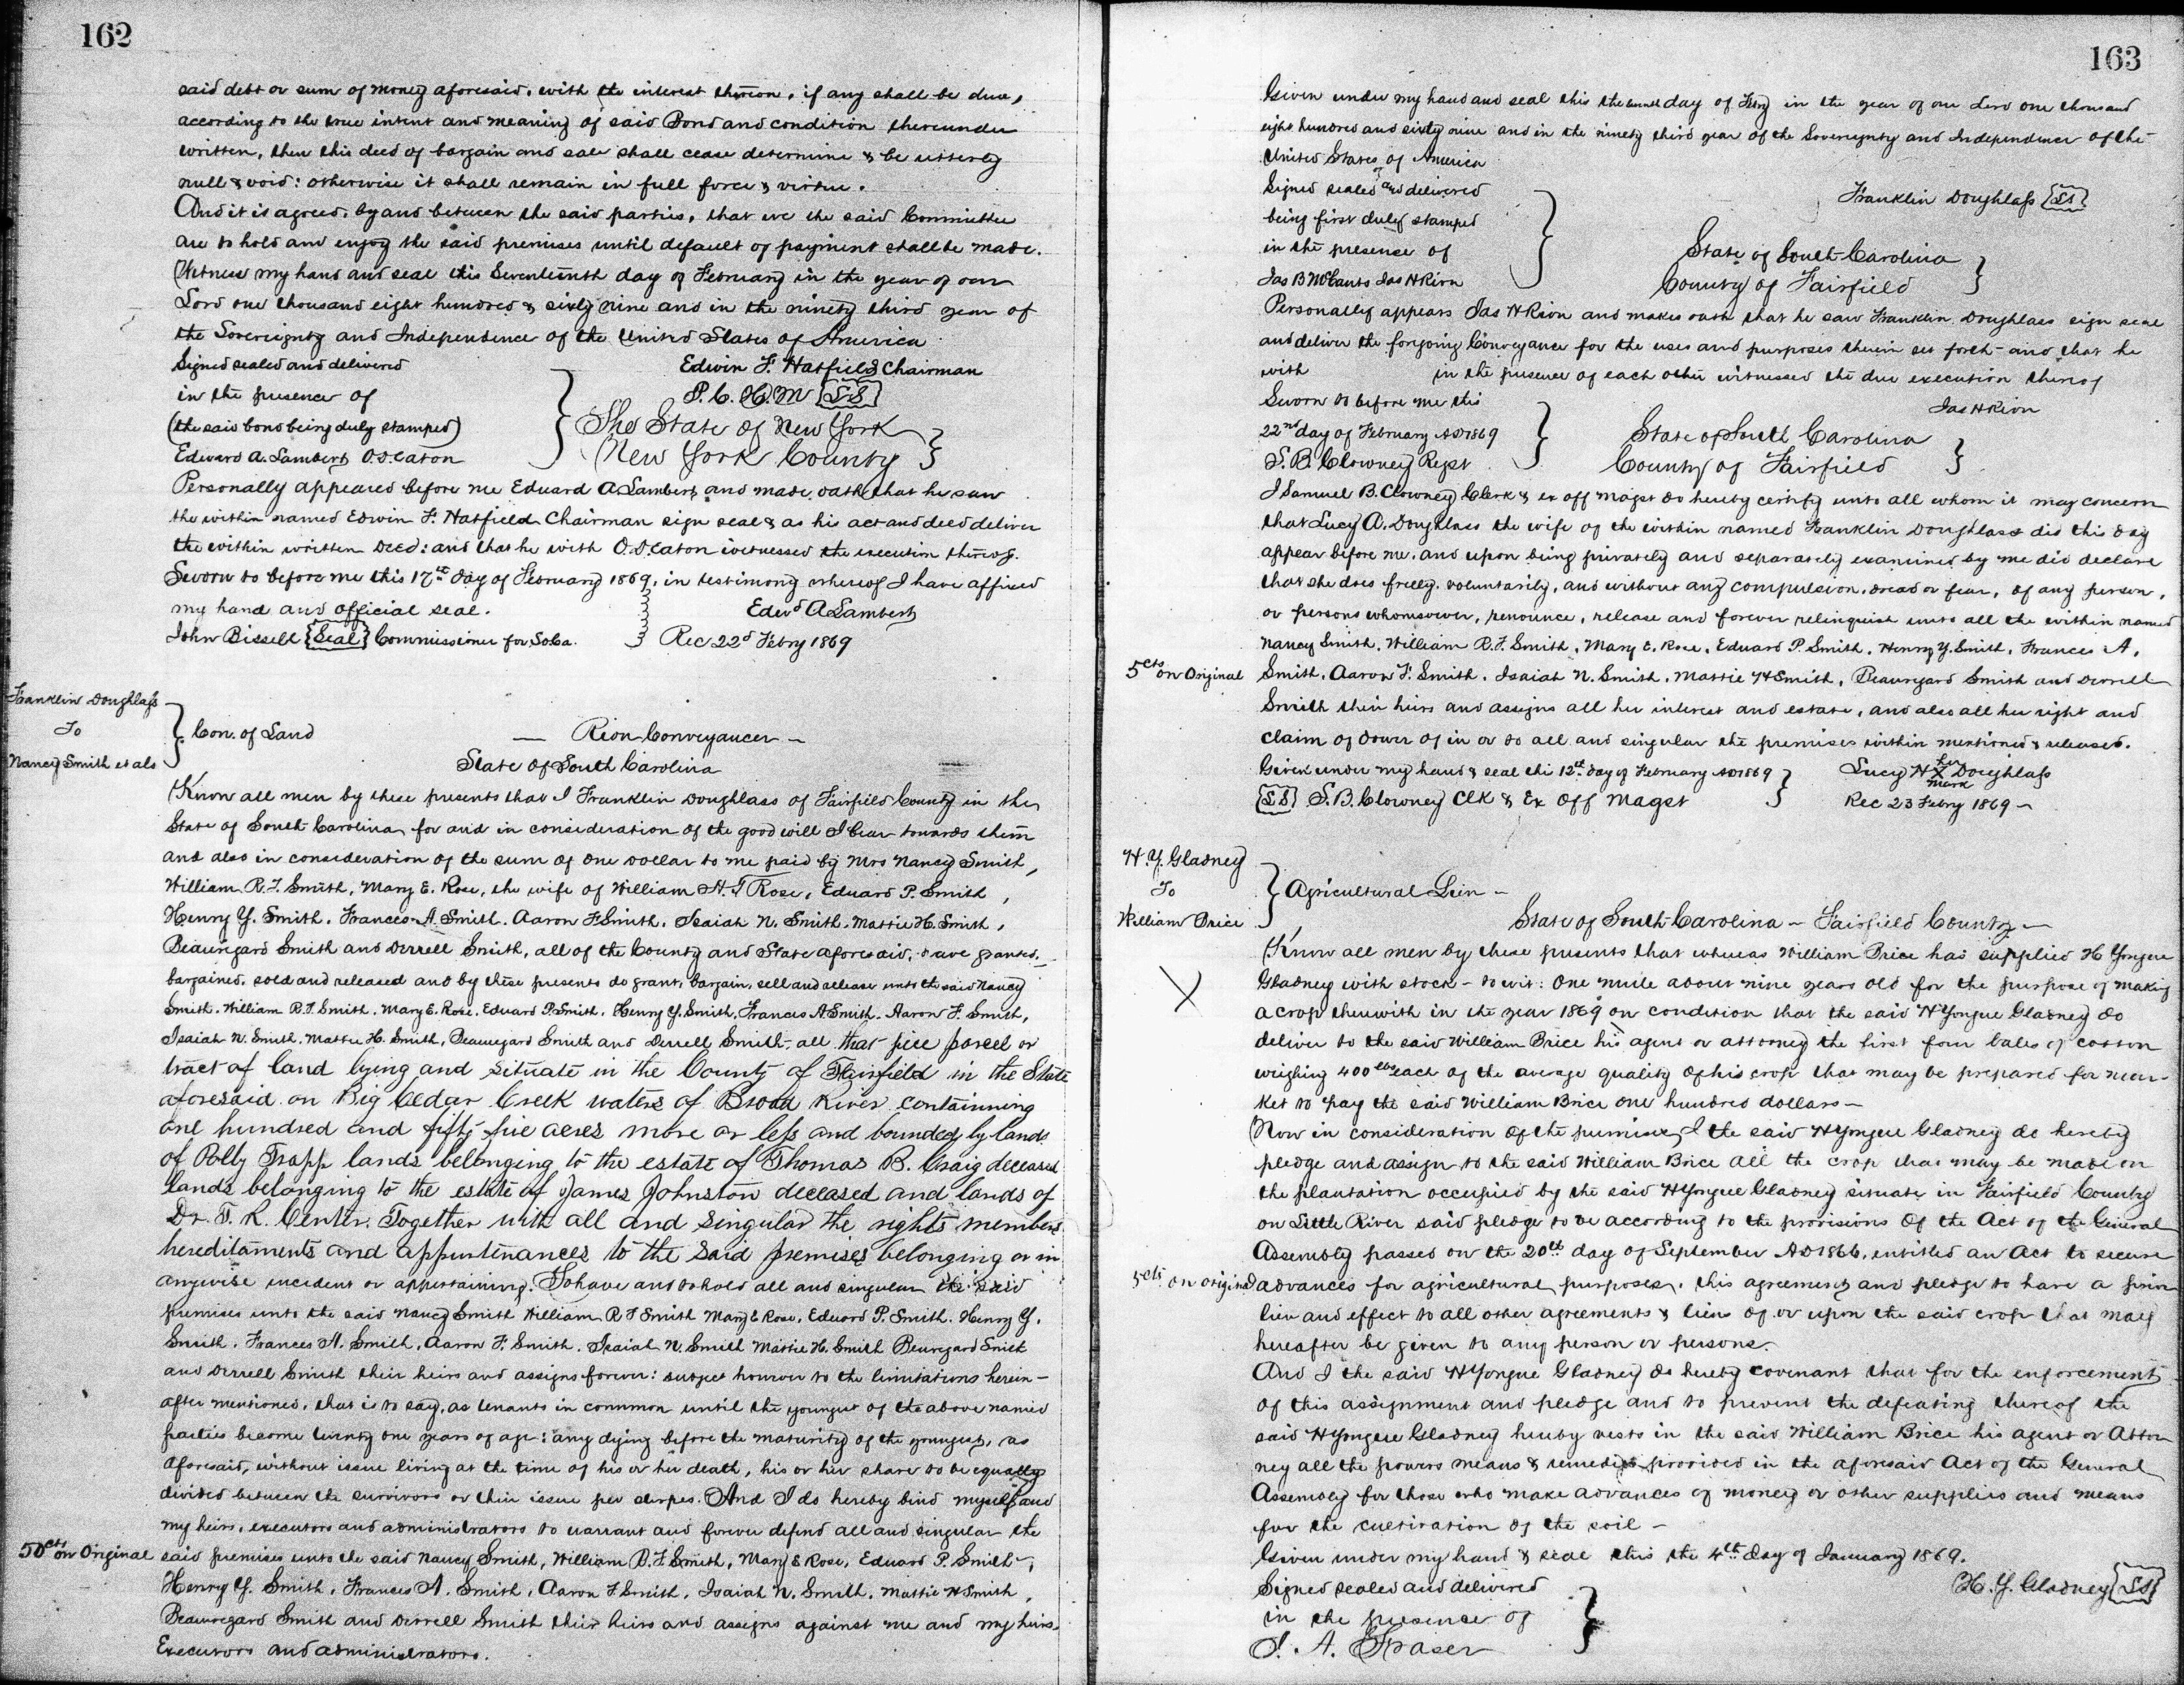 162
said debt or sum of money aforesaid, with the interest thereon, if any shall be due,
according to the true intent and meaning of said Bond and condition thereunder
written, then this deed of bargain and sale shall cease determine & be utterly
null & void: otherwise it shall remain in full force & virtue.
And it is agreed, by and between the said parties, that we the said Committee
are to hold and enjoy the said premises until default of payment shall be made.
Witness my hand and seal this Seventeenth day of February in the year of our
Lord one thousand eight hundred & sixty nine and in the ninety third year of
the Sovereignty and Independence of the United States of America
Signed sealed and delivered
in the presence of
(the said bond being duly stamped)
Edward A. Lambert O.D. Eaton
Edwin F. Hatfield Chairman
P. C. H. M [LS]
The State of New York
New York County
Personally appeared before me Edward A. Lambert and made oath that he saw
the within named Edwin F. Hatfield Chairman sign seal & as his act and deed deliver
the within written Deed: and that he with O.D. Eaton witnessed the execution thereof.
Sworn to before me this 17th day of February 1869, in testimony whereof I have affixed
my hand and official seal.
Edwd A Lambert
John Bissell [Seal] Commissioner for So Ca.
Rec 22d Febry 1869
Franklin Doughlass
To
Nancy Smith et als
Con. of Land
— Rion Conveyancer —
State of South Carolina
Know all men by these presents that I Franklin Doughlass of Fairfield County in the
State of South Carolina for and in consideration of the good will I bear towards them
and also in consideration of the sum of one dollar to me paid by Mrs Nancy Smith,
William R. F. Smith, Mary E. Rose, the wife of William A. T Rose, Edward P. Smith,
Henry Y. Smith, Frances A. Smith, Aaron F Smith, Isaiah N. Smith, Mattie H. Smith,
Beauregard Smith and Derrell Smith, all of the County and State aforesaid, have granted,
bargained, sold and released and by these presents do grant, bargain, sell and release unto the said Nancy
Smith, William R. F. Smith, Mary E. Rose, Edward P. Smith, Henry Y. Smith, Frances A Smith, Aaron F. Smith,
Isaiah N. Smith, Mattie H. Smith, Beauregard Smith and Derrell Smith, all that piece parcel or
tract of land lying and situate in the County of Fairfield in the State
aforesaid on Big Cedar Creek waters of Broad River containning
one hundred and fifty five acres more or less and bounded by lands
of Polly Trapp lands belonging to the estate of Thomas R. Craig deceased
lands belonging to the estate of James Johnston deceased and lands of
Dr. T. R. Center. Together with all and singular the rights members
hereditaments and appurtenances to the said premises belonging or in
anywise incident or appertaining. To have and to hold all and singular the said
premises unto the said Nancy Smith William R F Smith Mary E Rose, Edward P. Smith, Henry Y.
Smith, Frances A. Smith, Aaron F. Smith, Isaiah N. Smith Mattie H. Smith Beauregard Smith
and Derrell Smith their heirs and assigns forever: subject however to the limitations herein-
after mentioned, that is to say, as tenants in common until the youngest of the above named
parties become twenty one years of age: any dying before the maturity of the youngest, as
aforesaid, without issue living at the time of his or her death, his or her share to be equally
divided between the survivors or their issue per stirpes. And I do hereby bind myself and
my heirs, executors and administrators to warrant and forever defend all and singular the
50cts on Original
said premises unto the said Nancy Smith, William R. F. Smith, Mary E Rose, Edward P. Smith,
Henry Y. Smith, Frances A. Smith, Aaron F Smith, Isaiah N. Smith, Mattie H Smith,
Beauregard Smith and Derrell Smith their heirs and assigns against me and my heirs,
Executors and administrators.
163
Given under my hand and seal this the day of Feby in the year of our Lord one thousand
eight hundred and sixty nine and in the ninety third year of the Sovereignty and Independence of the
United States of America
Signed sealed and delivered
being first duly stamped
in the presence of
Jas B McCants Jas H Rion
Franklin Doughlass [LS]
State of South Carolina
County of Fairfield
Personally appears Jas H Rion and makes oath that he saw Franklin Doughlass sign seal
and deliver the forgoing Conveyance for the uses and purposes therein set forth and that he
with in the presence of each other witnessed the due execution thereof
Sworn to before me this
22nd day of February AD 1869
S. B. Clowney Regst
Jas H Rion
State of South Carolina
County of Fairfield
I Samuel B. Clowney Clerk & ex off Magst do hereby certify unto all whom it may concern
that Lucy A. Doughlass the wife of the within named Franklin Doughlass did this day
appear before me, and upon being privately and separately examined by me did declare
that she does freely, voluntarily, and without any compulsion, dread or fear, of any person,
or persons whomsoever, renounce, release and forever relinquish unto all the within named
Nancy Smith, William R. F. Smith, Mary E. Rose, Edward P. Smith, Henry Y. Smith, Frances A,
5cts on Original
Smith, Aaron F. Smith, Isaiah N. Smith, Mattie H Smith, Beauregard Smith and Derrell
Smith their heirs and assigns all her interest and estate, and also all her right and
claim of dower of in or to all and singular the premises within mentioned & released.
Given under my hand & seal thi 12th day of February AD 1869
[LS] S. B. Clowney Clk & Ex Off Magst
her
Lucy H X Doughlass
mark
Rec 23 Febry 1869 —
H. Y. Gladney
To
William Brice
Agricultural Lien —
State of South Carolina — Fairfield County —
X
Know all men by these presents that whereas William Brice has supplied H Yongue
Gladney with stock — to wit: One mule about nine years old for the purpose of making
a crop therewith in the year 1869 on condition that the said H Yongue Gladney do
deliver to the said William Brice his agent or attorney the first four bales of cotton
weighing 400 lbs each of the average quality of his crop that may be prepared for mar-
ket to pay the said William Brice one hundred dollars —
Now in consideration of the premises I the said H Yongue Gladney do hereby
pledge and assign to the said William Brice all the crop that may be made on
the plantation occupied by the said H Yongue Gladney situate in Fairfield County
on Little River said pledge to be according to the provisions of the Act of the General
Assembly passed on the 20th day of September AD 1866, entitled an Act to secure
5cts on original
advances for agricultural purposes, this agreement and pledge to have a prior
lien and effect to all other agreements & liens of or upon the said crop that may
hereafter be given to any person or persons.
And I the said H Yongue Gladney do hereby covenant that for the enforcement
of this assignment and pledge and to prevent the defeating thereof the
said H Yongue Gladney hereby vests in the said William Brice his agent or Attor
ney all the powers means & remedies provided in the aforesaid Act of the General
Assembly for those who make advances of money or other supplies and means
for the cultivation of the soil —
Given under my hand & seal this the 4th day of January 1869.
Signed sealed and delivered
in the presence of
J. A. Fraser
H. Y. Gladney [LS]